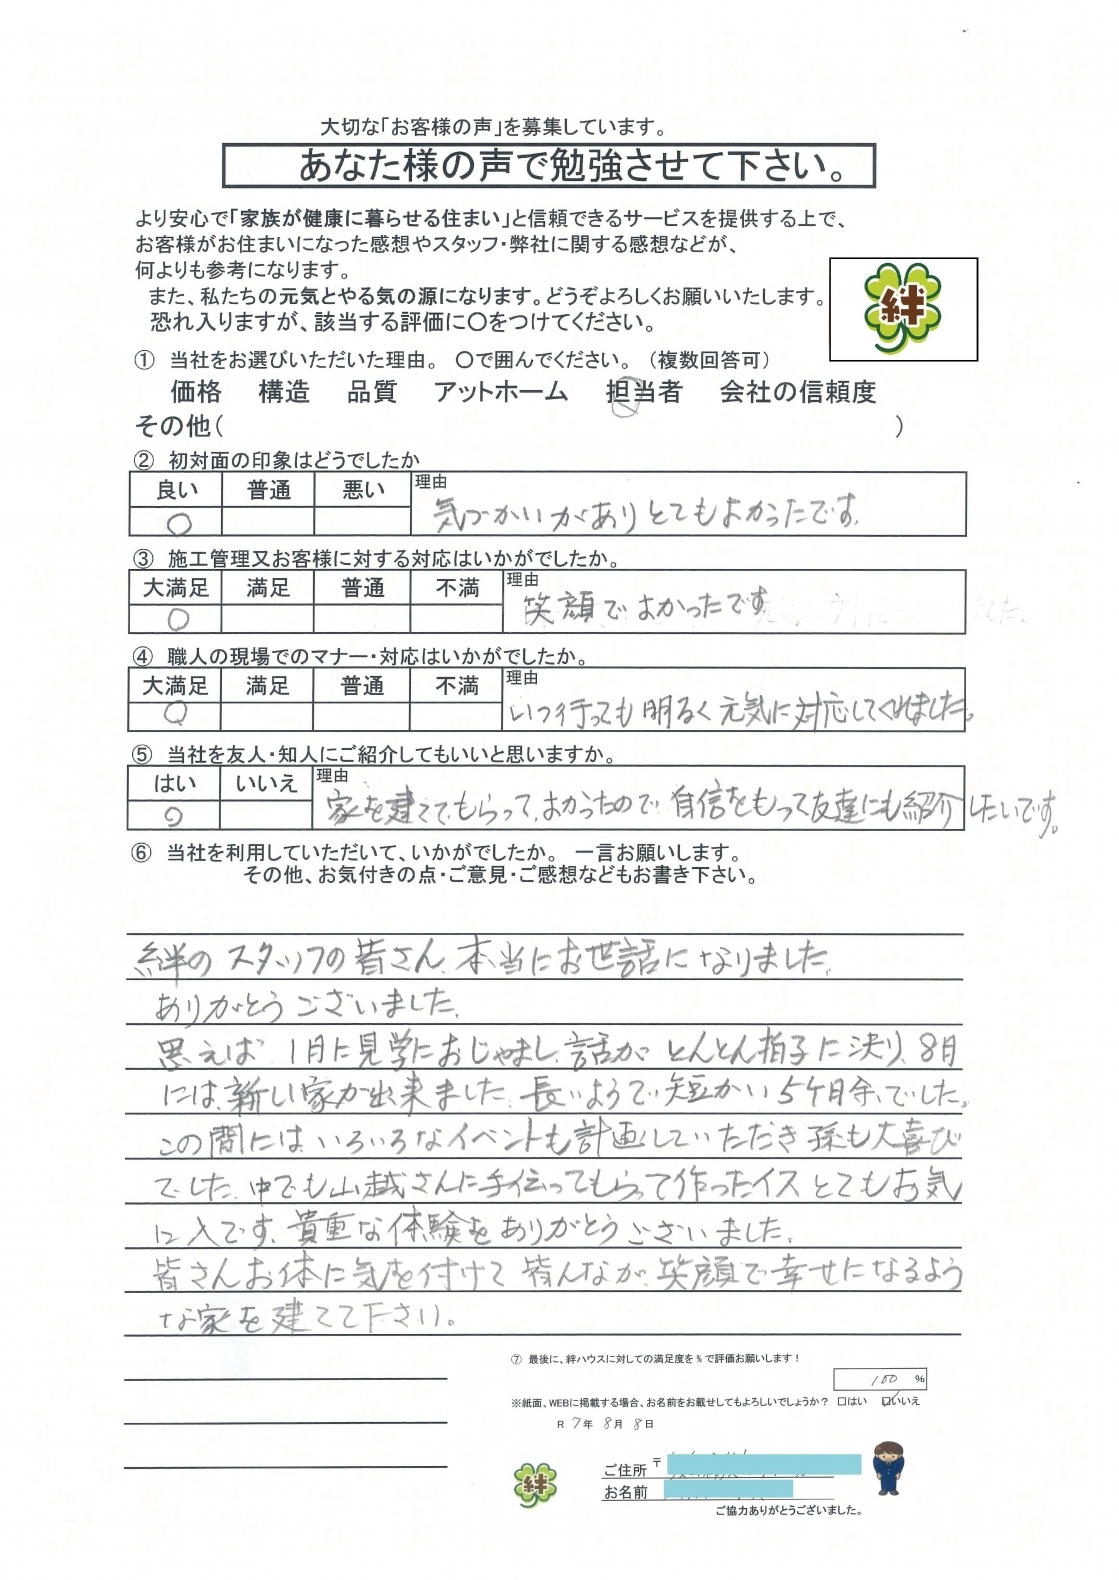 大切な「お客様の声」を募集しています。
あなた様の声で勉強させて下さい。
より安心で「家族が健康に暮らせる住まい」と信頼できるサービスを提供する上で、
お客様がお住まいになった感想やスタッフ・弊社に関する感想などが、
何よりも参考になります。
また、私たちの元気とやる気の源になります。どうぞよろしくお願いいたします。
恐れ入りますが、該当する評価に〇をつけてください。
絆
① 当社をお選びいただいた理由。 〇で囲んでください。（複数回答可）
価格 構造 品質 アットホーム 担当者 会社の信頼度
その他（ ）
② 初対面の印象はどうでしたか
良い 普通 悪い 理由
〇 気づかいがありとてもよかったです。
③ 施工管理又お客様に対する対応はいかがでしたか。
大満足 満足 普通 不満 理由
〇 笑顔でよかったです
④ 職人の現場でのマナー・対応はいかがでしたか。
大満足 満足 普通 不満 理由
〇 いつ行っても明るく元気に対応してくれました。
⑤ 当社を友人・知人にご紹介してもいいと思いますか。
はい いいえ 理由
〇 家を建ててもらって、よかったので自信をもって友達にも紹介したいです。
⑥ 当社を利用していただいて、いかがでしたか。 一言お願いします。
その他、お気付きの点・ご意見・ご感想などもお書き下さい。
絆のスタッフの皆さん、本当にお世話になりました。
ありがとうございました。
思えば 1月に見学におじゃまし、話がとんとん拍子に決り、8月
には、新しい家が出来ました。長いようで短かい5ケ月余、でした。
この間には、いろいろなイベントも計画していただき孫も大喜び
でした。中でも山越さんに手伝ってもらって作ったイスとてもお気
に入です。貴重な体験をありがとうございました。
皆さんお体に気を付けて皆んなが、笑顔で幸せになるよう
な家を建てて下さい。
⑦ 最後に、絆ハウスに対しての満足度を％で評価お願いします！
100 %
※紙面、WEBに掲載する場合、お名前をお載せしてもよろしいでしょうか？ □はい ☑いいえ
R 7年 8月 8日
絆
ご住所 〒
お名前
ご協力ありがとうございました。